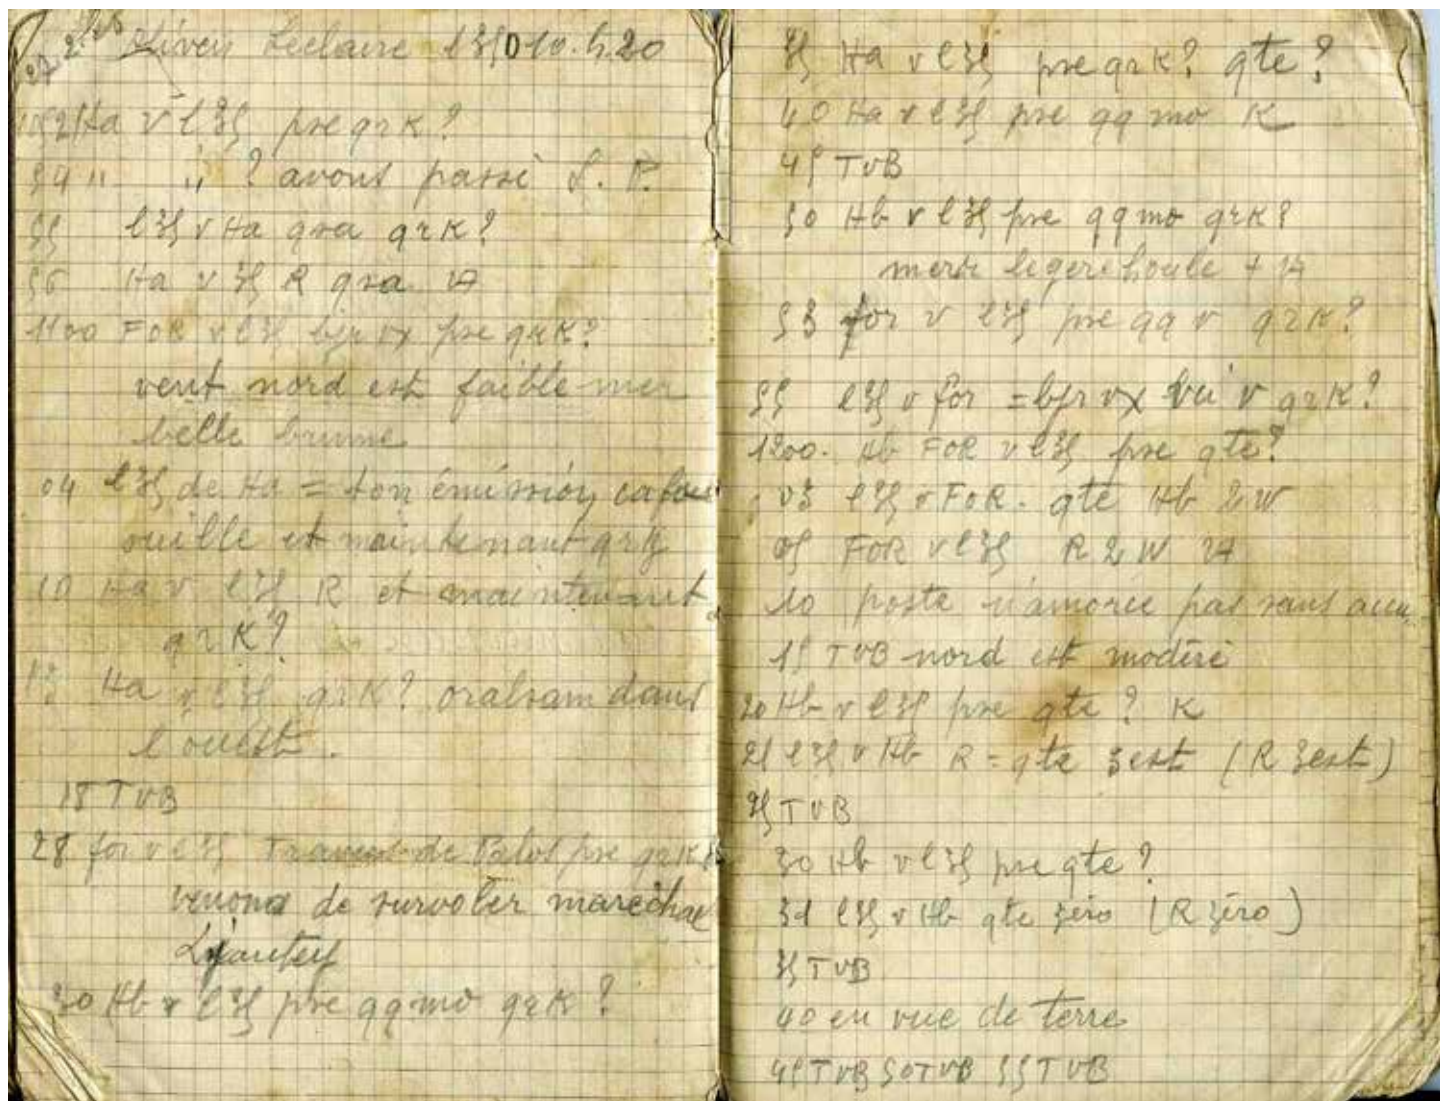 Leclaire l35 D 10.h.20
1052 Ha v l35 pse qrk?
54 " " ? avons passé S. P.
55 l35 v Ha qsa qrk?
56 Ha v l35 R qsa VA
1100 FOR v l35 bjr vx pse qrk?
vent nord est faible mer
belle brume
04 l35 de Ha = ton émission cafou
ouille et maintenant qrk
10 Ha v l35 R et maintenant
qrk?
Ha v l35 qrk? dans
l'ouest.
18 TVB
28 for v l35 Travers de pse qrk
venons de survoler maréchal
Lyautey
30 Hb v l35 pse qq mo qrk?
35 Ha v l35 pse qrk? qte?
40 Ha v l35 pse qq mo K
45 TVB
50 Hb v l35 pse qq mo qrk?
legere houle + VA
53 for v l35 pse qq v qrk?
55 l35 v for = bjr vx v qrk?
1200. Hb FOR v l35 pse qte?
03 l35 v FOR. qte Hb 2W
05 FOR v l35 R 2 W VA
10 poste n'amorce pas sans accu
15 TVB nord est modéré
20 Hb v l35 pse qte? K
21 l35 v Hb R = qte zest (R zest)
25 TVB
30 Hb v l35 pse qte?
31 l35 v Hb qte zéro (R zéro)
35 TVB
40 en vue de terre
45 TVB 50 TVB 55 TVB